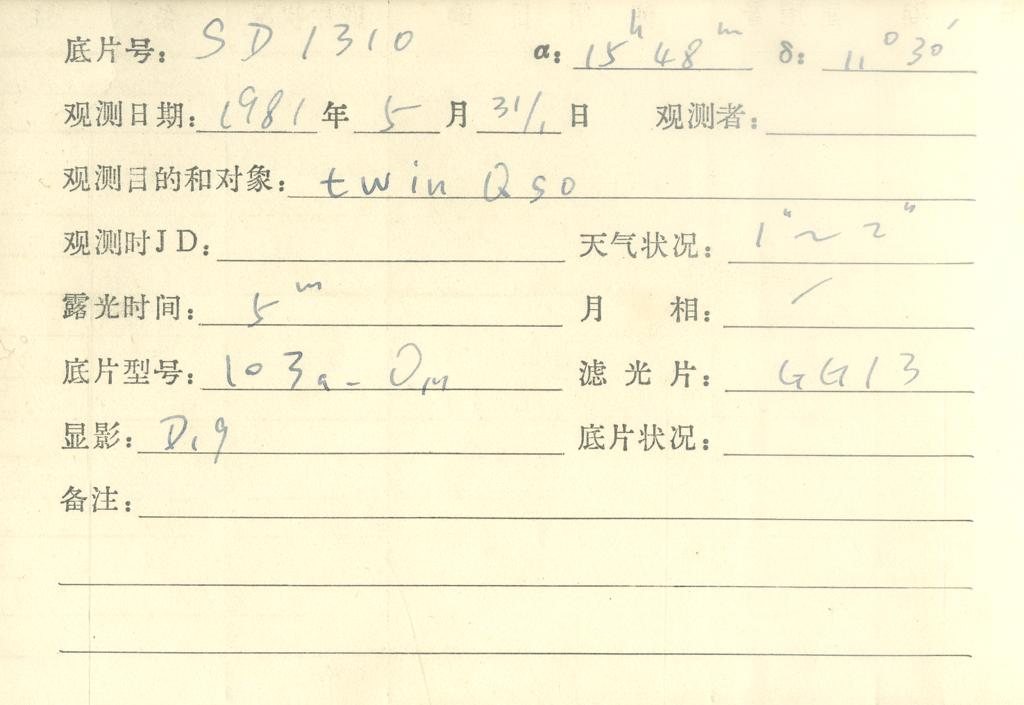 底片号: SD1310 α: 15ʰ 48ᵐ δ: 11°30′
观测日期: 1981 年 5 月 31/1 日 观测者:
观测目的和对象: twin Qso
观测时JD: 天气状况: 1"~2"
露光时间: 5ᵐ 月 相: /
底片型号: 103a-O 滤光片: GG13
显影: D19 底片状况:
备注: